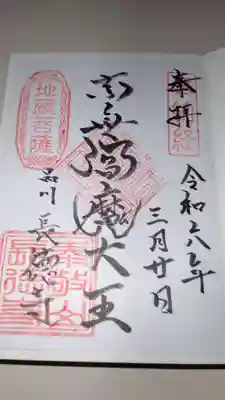 奉拝
令和六年
三月廿日
南無閻魔大王
地蔵菩薩
品川 長徳寺
長徳寺